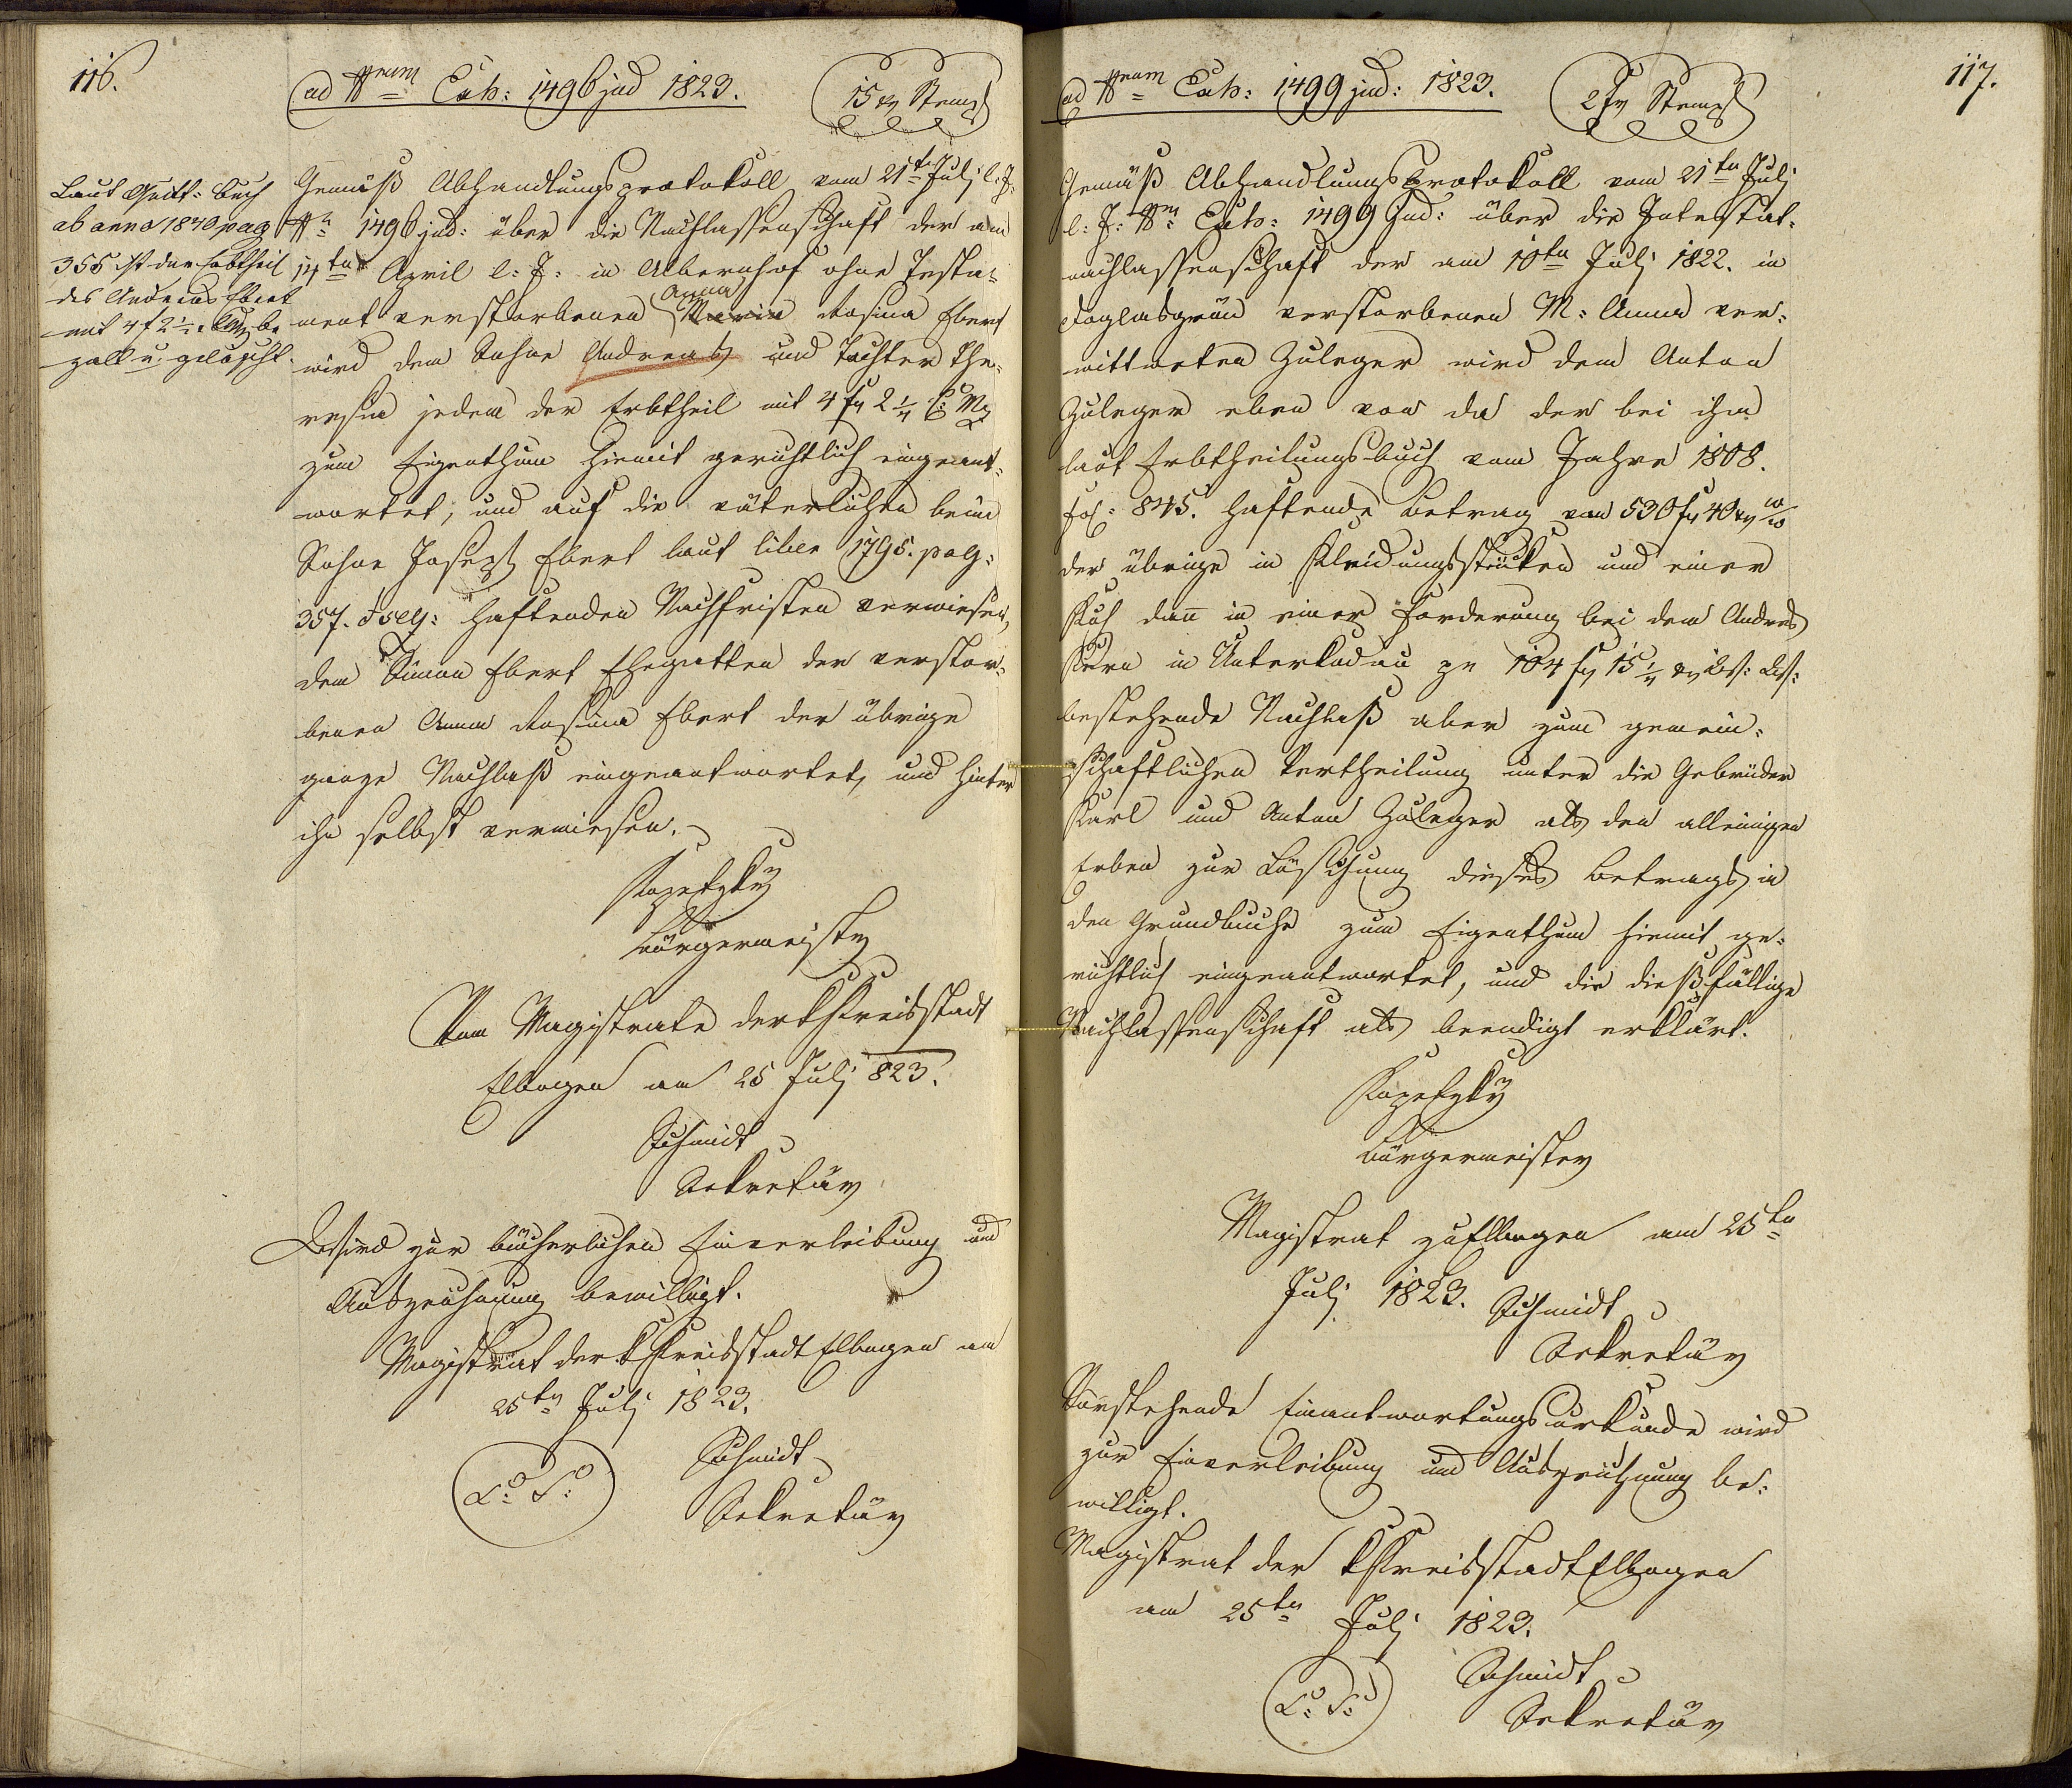 116.
ad Nrum Exh: 1496 jud 1823.
15 xr Stempl
Laut Quitt: Buch
ab anno 1840 pag
355 ist der Erbtheil
des Andreas Ebert
mit 4 f 2 1/4 be
zalt u. gelöscht.
Gemäß Abhandlungsprotokoll vom 21ten Julj l: J:
Nr 1496 jud: über die Nachlassenschaft der am
14ten April l: J: in Albernhof ohne Testa=
Anna
ment verstorbenen Maria Rosina Ebert
wird dem Sohne Andreas und Tochter The=
resia jedem der Erbtheil mit 4 f 2 1/4 C: Mz
zum Eigenthum hiemit gerichtlich eingeant=
wortet, und auf die väterlichen beim
Sohne Joseph Ebert laut liber 1795. pag:
357. et seq: haftenden Nachfristen verwiesen,
dem Simon Ebert Ehegatten der verstor=
benen Anna Rosina Ebert der übrige
ganze Nachlaß eingeantwortet, und hinter
ihn selbst verwiesen.
Kopetzky
Bürgermeister
Vom Magistrate der k Kreisstadt
Elbogen am 25 Julj 823.
Schmidt
Sekretär
Wird zur bücherlichen Einverleibung und
Auszeichnung bewilligt.
Magistrat der k Kreisstadt Elbogen am
25ten Julj 1823.
L: S:
Schmidt
Sekretär
117.
ad Nrum Exh: 1499 jud: 1823.
2 f Stempl
Gemäß Abhandlungsprotokoll vom 21ten Julj
l: J: Nr Exh: 1499 Jud: über die Intestat=
nachlassenschaft der am 10ten Julj 1822. in
Poglasgrün verstorbenen M: Anna ver=
wittweten Zuleger wird dem Anton
Zuleger eben von da der bei ihm
laut Erbtheilungsbuch vom Jahre 1808.
fol: 845. haftende Betrag von 530 f 40 xr
der übrige in Kleidungsstücken und einer
Kuh dann in einer Forderung bei dem Andres
Kern in Unterkodau zu 104 f 15 1/4 xr
bestehende Nachlaß aber zum gemein=
schaftlichen Vertheilung unter die Gebrüder
Karl und Anton Zuleger als den alleinigen
Erben zur Löschung dieses Betrags in
den Grundbuche zum Eigenthum hiemit ge=
richtlich eingeantwortet, und die dießfällige
Nachlassenschaft als beendigt erklärt.
Kopetzky
Bürgermeister
Magistrat zu Elbogen am 25ten
Julj 1823.
Schmidt
Sekretär
Vorstehende Einantwortungsurkunde wird
zur Einverleibung und Auszeichnung be=
willigt.
Magistrat der k Kreisstadt Elbogen
am 25ten Julj 1823.
L: S:
Schmidt
Sekretär